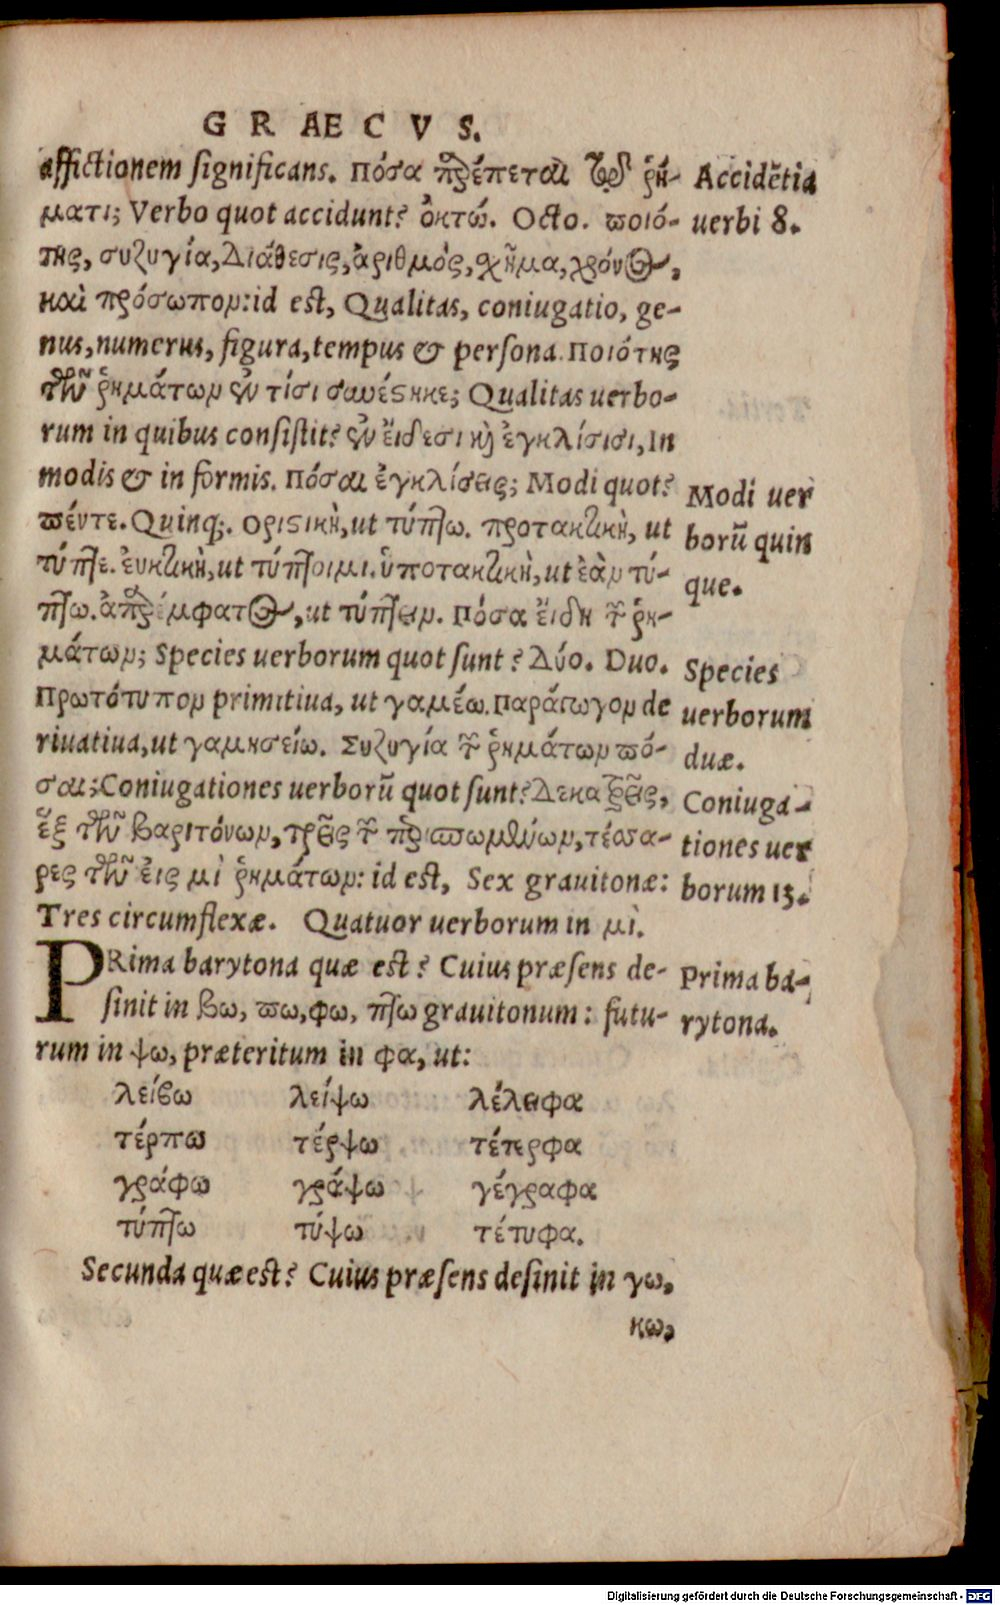 GRAECVS.
affictionem significans. Πόσα παρέπεται τῷ ῥή-
ματι; Verbo quot accidunt? ὀκτώ. Octo. ποιό-
της, συζυγία, Διάθεσις, ἀριθμὸς, χῆμα, χρόνος,
καὶ πρόσωπον: id est, Qualitas, coniugatio, ge-
nus, numerus, figura, tempus & persona. Ποιότης
τῶν ῥημάτων ἐν τίσι συνέστηκε; Qualitas uerbo-
rum in quibus consistit? ἐν εἴδεσι καὶ ἐγκλίσισι, In
modis & in formis. Πόσαι ἐγκλίσεις; Modi quot?
πέντε. Quinq;. Ὁριστικὴ, ut τύπτω. προτακτικὴ, ut
τύπτε. ἐυκτικὴ, ut τύπτοιμι. ὑποτακτικὴ, ut ἐὰν τύ-
πτω. ἀπαρέμφατος, ut τύπτειν. Πόσα εἴδη τῶν ῥη-
μάτων; Species uerborum quot sunt? Δύο. Duo.
Πρωτότυπον primitiua, ut γαμέω. Παράγωγον de
riuatiua, ut γαμησείω. Συζυγία τῶν ῥημάτων πό-
σαι; Coniugationes uerborū quot sunt? Δεκατρεῖς,
ἕξ τῶν βαριτόνων, τρεῖς τῶν περισπωμένων, τέσσα-
ρες τῶν εἰς μὶ ῥημάτων: id est, Sex grauitonæ:
Tres circumflexæ. Quatuor uerborum in μι.
PRima barytona quæ est? Cuius præsens de-
sinit in βω, πω, φω, πτω grauitonum: futu-
rum in ψω, præteritum in φα, ut:
λείβω λείψω λέλειφα
τέρπω τέρψω τέτερφα
γράφω γράψω γέγραφα
τύπτω τύψω τέτυφα.
Secunda quæ est? Cuius præsens desinit in γω,
κω,
Accidētia
uerbi 8.
Modi uer
borū quin
que.
Species
uerborum
duæ.
Coniuga-
tiones uer
borum 13.
Prima ba-
rytona.
Digitalisierung gefördert durch die Deutsche Forschungsgemeinschaft - DFG